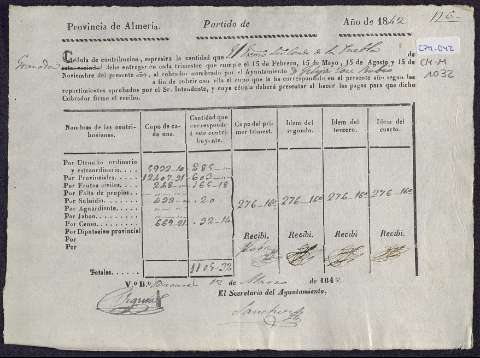 Provincia de Almería. Partido de Año de 1842
115
CPM-042
CM-M
1032
Cédula de contribucion, espresiva la cantidad que El de la Puebla de
debe entregar en cada trimestre que cumple el 15 de Febrero, 15 de Mayo, 15 de Agosto y 15 de
Noviembre del presente año, al cobrador nombrado por el Ayuntamiento D.
á fin de cubrir con ella el cupo que le ha correspondido en el presente año segun los
repartimientos aprobados por el Sr. Intendente, y cuya cédula deberá presentar al hacer los pagos para que dicho
Cobrador firme el recibo.
Nombres de las contribuciones. Cupo de cada uno. Cantidad que corresponde á este contribuyente. Cupo del primer trimest. Idem del segundo. Idem del tercero. Idem del cuarto.
Por Utensilio ordinario
y estraordinario. 285
Por Provinciales. 603
Por Frutos civiles. 268 165-18
Por Falta de propios.
Por Subsidio. 20 276-16 276-16 276-16 276-16
Por Aguardiente.
Por Jabon.
Por Censo. 669-21 32-14
Por Diputacion provincial Recibí. Recibí. Recibí. Recibí.
Por
Por
Totales. 1105-32
V.º B.º de Marzo de 1842
El Secretario del Ayuntamiento,